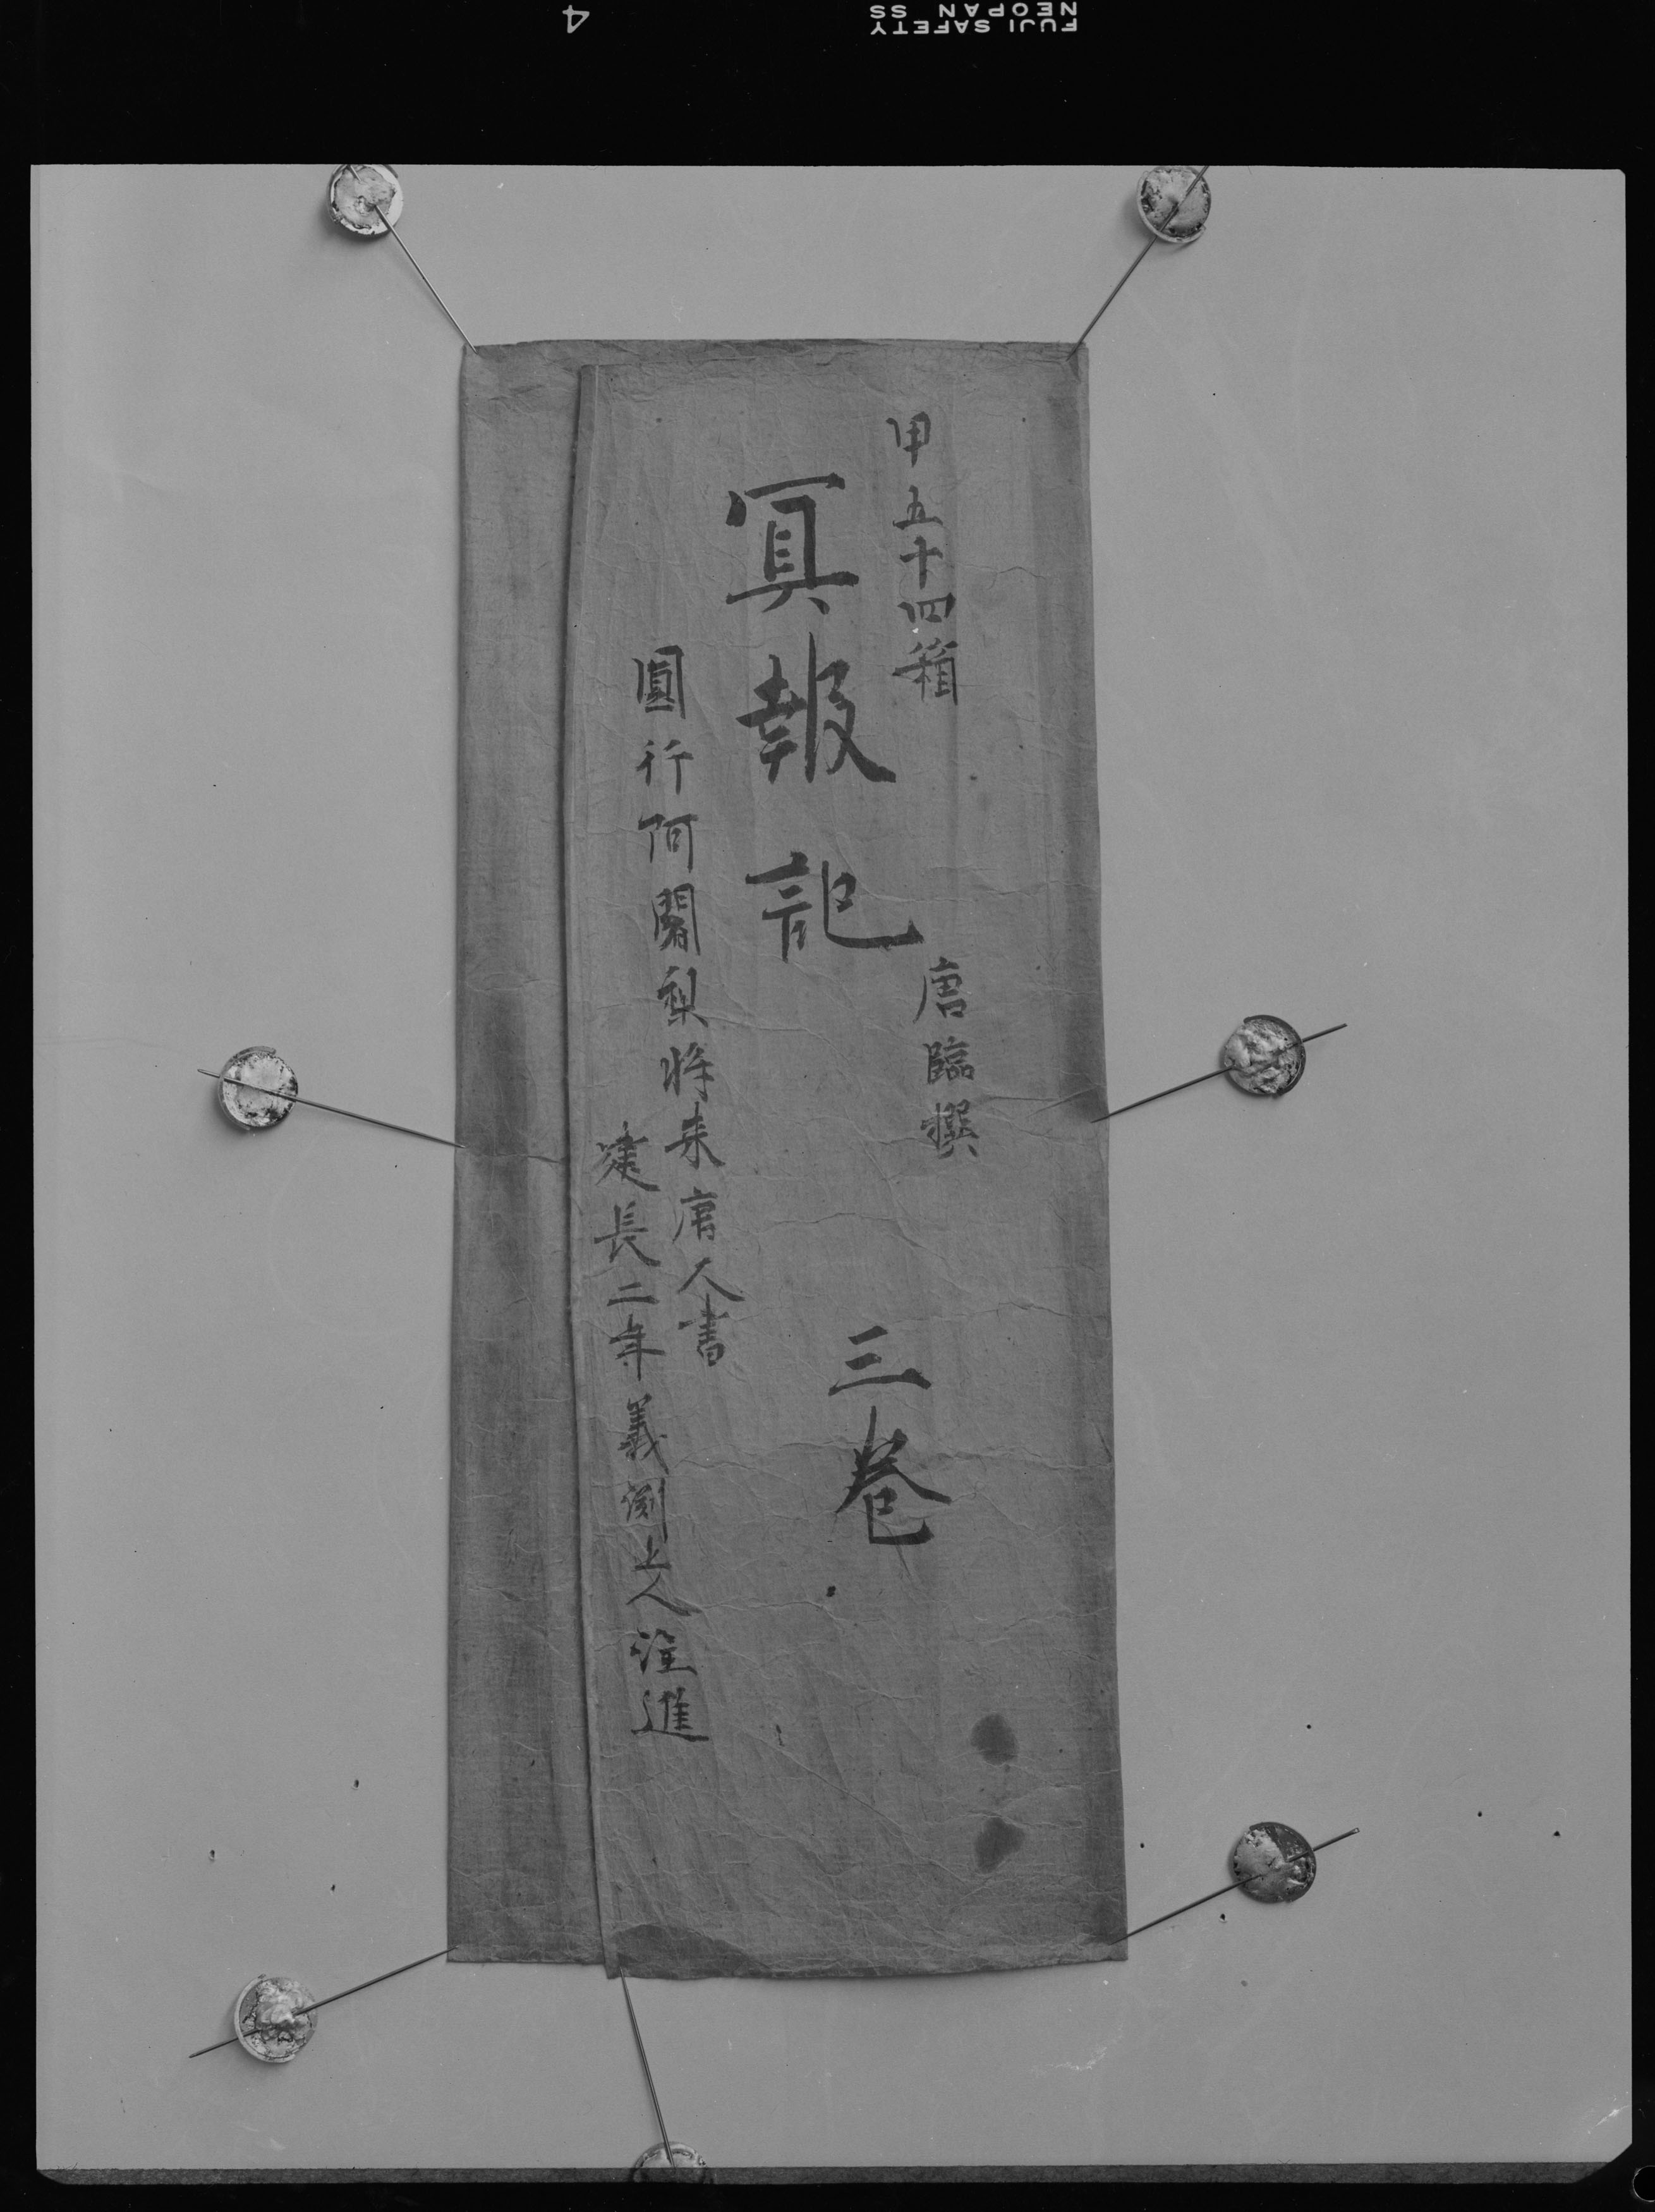 甲五十四箱
冥報記 唐臨撰 三卷
圓行阿闍梨將来唐人書
建長二年義淵上人注進
FUJI SAFETY
NEOPAN SS
4